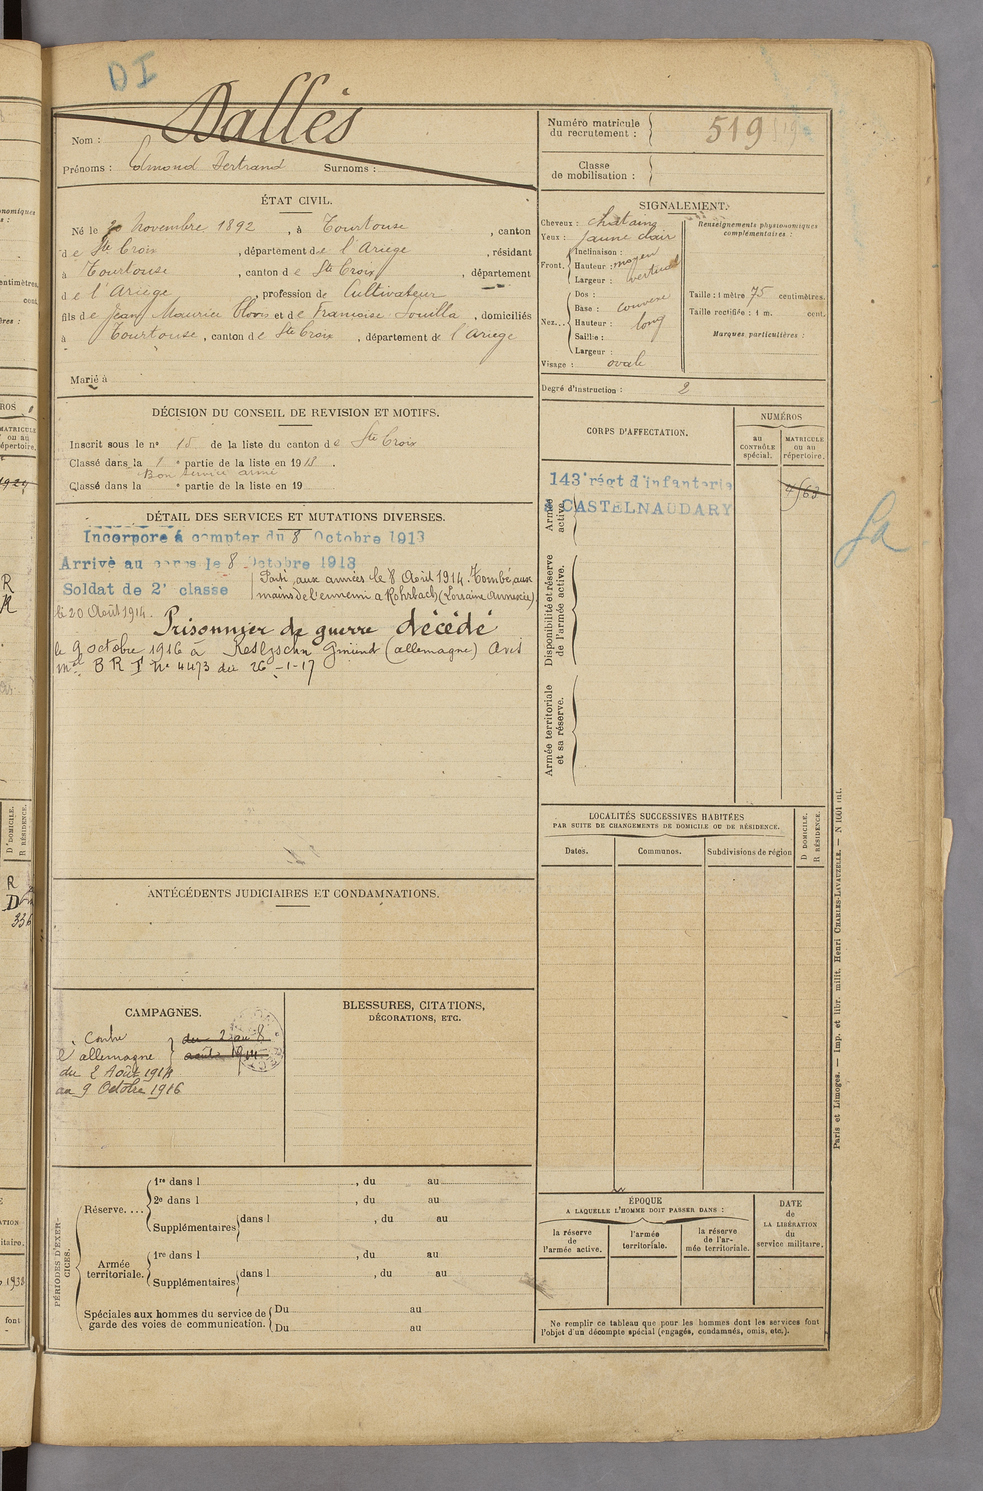 DI
Nom : Dallès
Prénoms : Edmond Bertrand Surnoms :
Numéro matricule du recrutement : 519
Classe de mobilisation :
ÉTAT CIVIL.
Né le 20 Novembre 1892, à Tourtouse, canton
de Ste Croix, département de l'Ariege, résidant
à Tourtouse, canton de Ste Croix, département
de l'Ariège, profession de Cultivateur
fils de Jean Maurice Clovis et de Françoise Souilla, domiciliés
à Tourtouse, canton de Ste Croix, département de l'Ariege
Marié à
SIGNALEMENT.
Cheveux : chatains
Yeux : jaune clair
Front. Inclinaison :
Hauteur : moyen
Largeur : vertical
Nez... Dos :
Base : convexe
Hauteur : long
Saillie :
Largeur :
Visage : ovale
Renseignements physionomiques complémentaires :
Taille : 1 mètre 75 centimètres.
Taille rectifiée : 1 m. cent.
Marques particulières :
Degré d'instruction : 2
DÉCISION DU CONSEIL DE REVISION ET MOTIFS.
Inscrit sous le no 15 de la liste du canton de Ste Croix
Classé dans la 1e partie de la liste en 1913.
Bon service armé
Classé dans la e partie de la liste en 19
DÉTAIL DES SERVICES ET MUTATIONS DIVERSES.
Incorporé à compter du 8 Octobre 1913
Arrivé au corps le 8 Octobre 1913
Soldat de 2e classe
Parti aux armées le 8 Août 1914. Tombé aux
mains de l'ennemi a Rohrbach (Lorraine Annexée)
le 20 Août 1914.
Prisonnier de guerre décédé
le 9 octobre 1916 à Gmünd (allemagne) Avis
mel B R I No 4473 du 26-1-17
CORPS D'AFFECTATION.
NUMÉROS
au CONTRÔLE spécial.
MATRICULE ou au répertoire.
143e régt d'infanterie
à CASTELNAUDARY
4563
Armée active.
Disponibilité et réserve de l'armée active.
Armée territoriale et sa réserve.
La
LOCALITÉS SUCCESSIVES HABITÉES
PAR SUITE DE CHANGEMENTS DE DOMICILE OU DE RÉSIDENCE.
D DOMICILE.
R RÉSIDENCE.
Dates.
Communes.
Subdivisions de région
ANTÉCÉDENTS JUDICIAIRES ET CONDAMNATIONS.
CAMPAGNES.
Contre
l'allemagne
du 2 au 8
août 1914
du 2 Août 1914
au 9 Octobre 1916
BLESSURES, CITATIONS,
DÉCORATIONS, ETC.
PÉRIODES D'EXERCICES.
Réserve....
1re dans l , du au
2e dans l , du au
Supplémentaires dans l , du au
Armée territoriale.
1re dans l , du au
Supplémentaires dans l , du au
Spéciales aux hommes du service de garde des voies de communication.
Du au
Du au
ÉPOQUE
A LAQUELLE L'HOMME DOIT PASSER DANS :
la réserve de l'armée active.
l'armée territoriale.
la réserve de l'armée territoriale.
DATE de LA LIBÉRATION du service militaire.
Ne remplir ce tableau que pour les hommes dont les services font
l'objet d'un décompte spécial (engagés, condamnés, omis, etc.).
Paris et Limoges. — Imp. et libr. milit. Henri CHARLES-LAVAUZELLE. — N 1601 int.